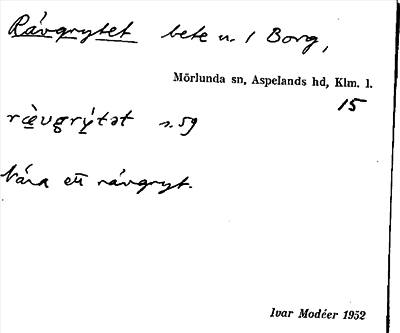 Rävgrytet bete u. / Borg,
Mörlunda sn, Aspelands hd, Klm. l.
15
ræ̀vgrýtət s. 59
Vara ett rävgryt.
Ivar Modéer 1952